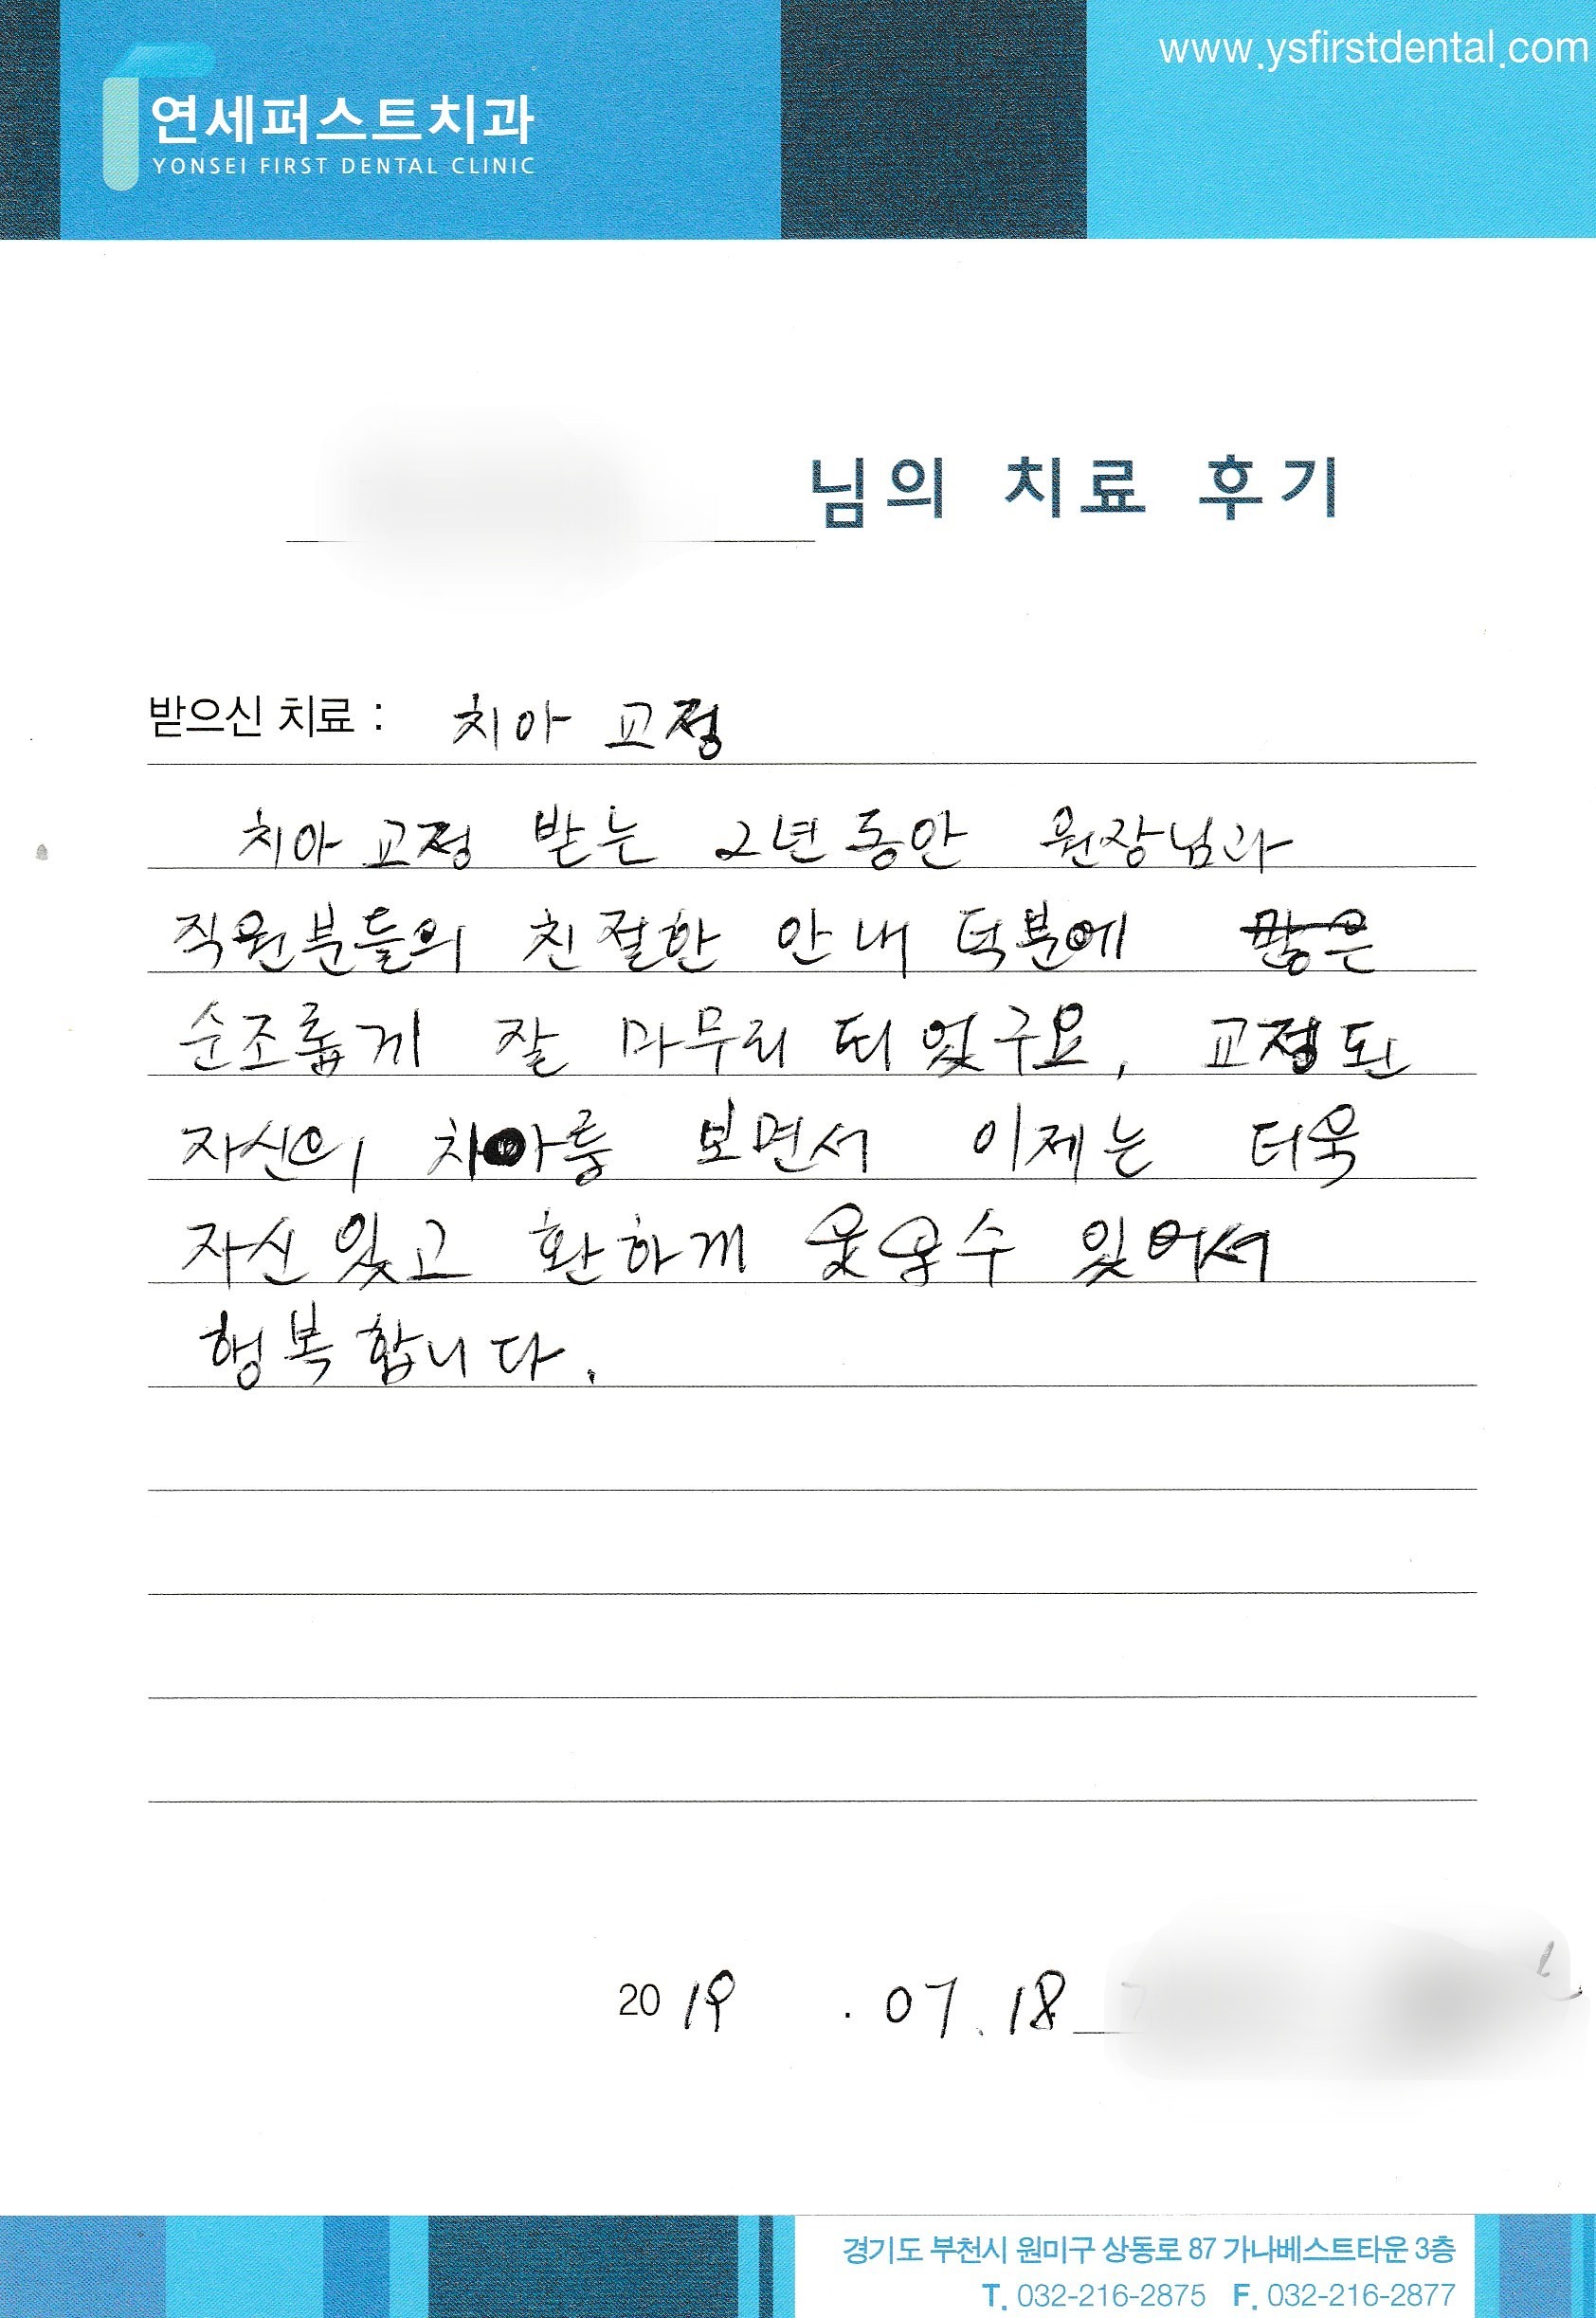 www.ysfirstdental.com
연세퍼스트치과
YONSEI FIRST DENTAL CLINIC
님의 치료 후기
받으신 치료 : 치아 교정
치아 교정 받는 2년 동안 원장님과
직원분들의 친절한 안내 덕분에
순조롭게 잘 마무리 되었구요, 교정된
자신의 치아를 보면서 이제는 더욱
자신있고 환하게 웃을수 있어서
행복합니다.
2019 . 07. 18
경기도 부천시 원미구 상동로 87 가나베스트타운 3층
T. 032-216-2875 F. 032-216-2877